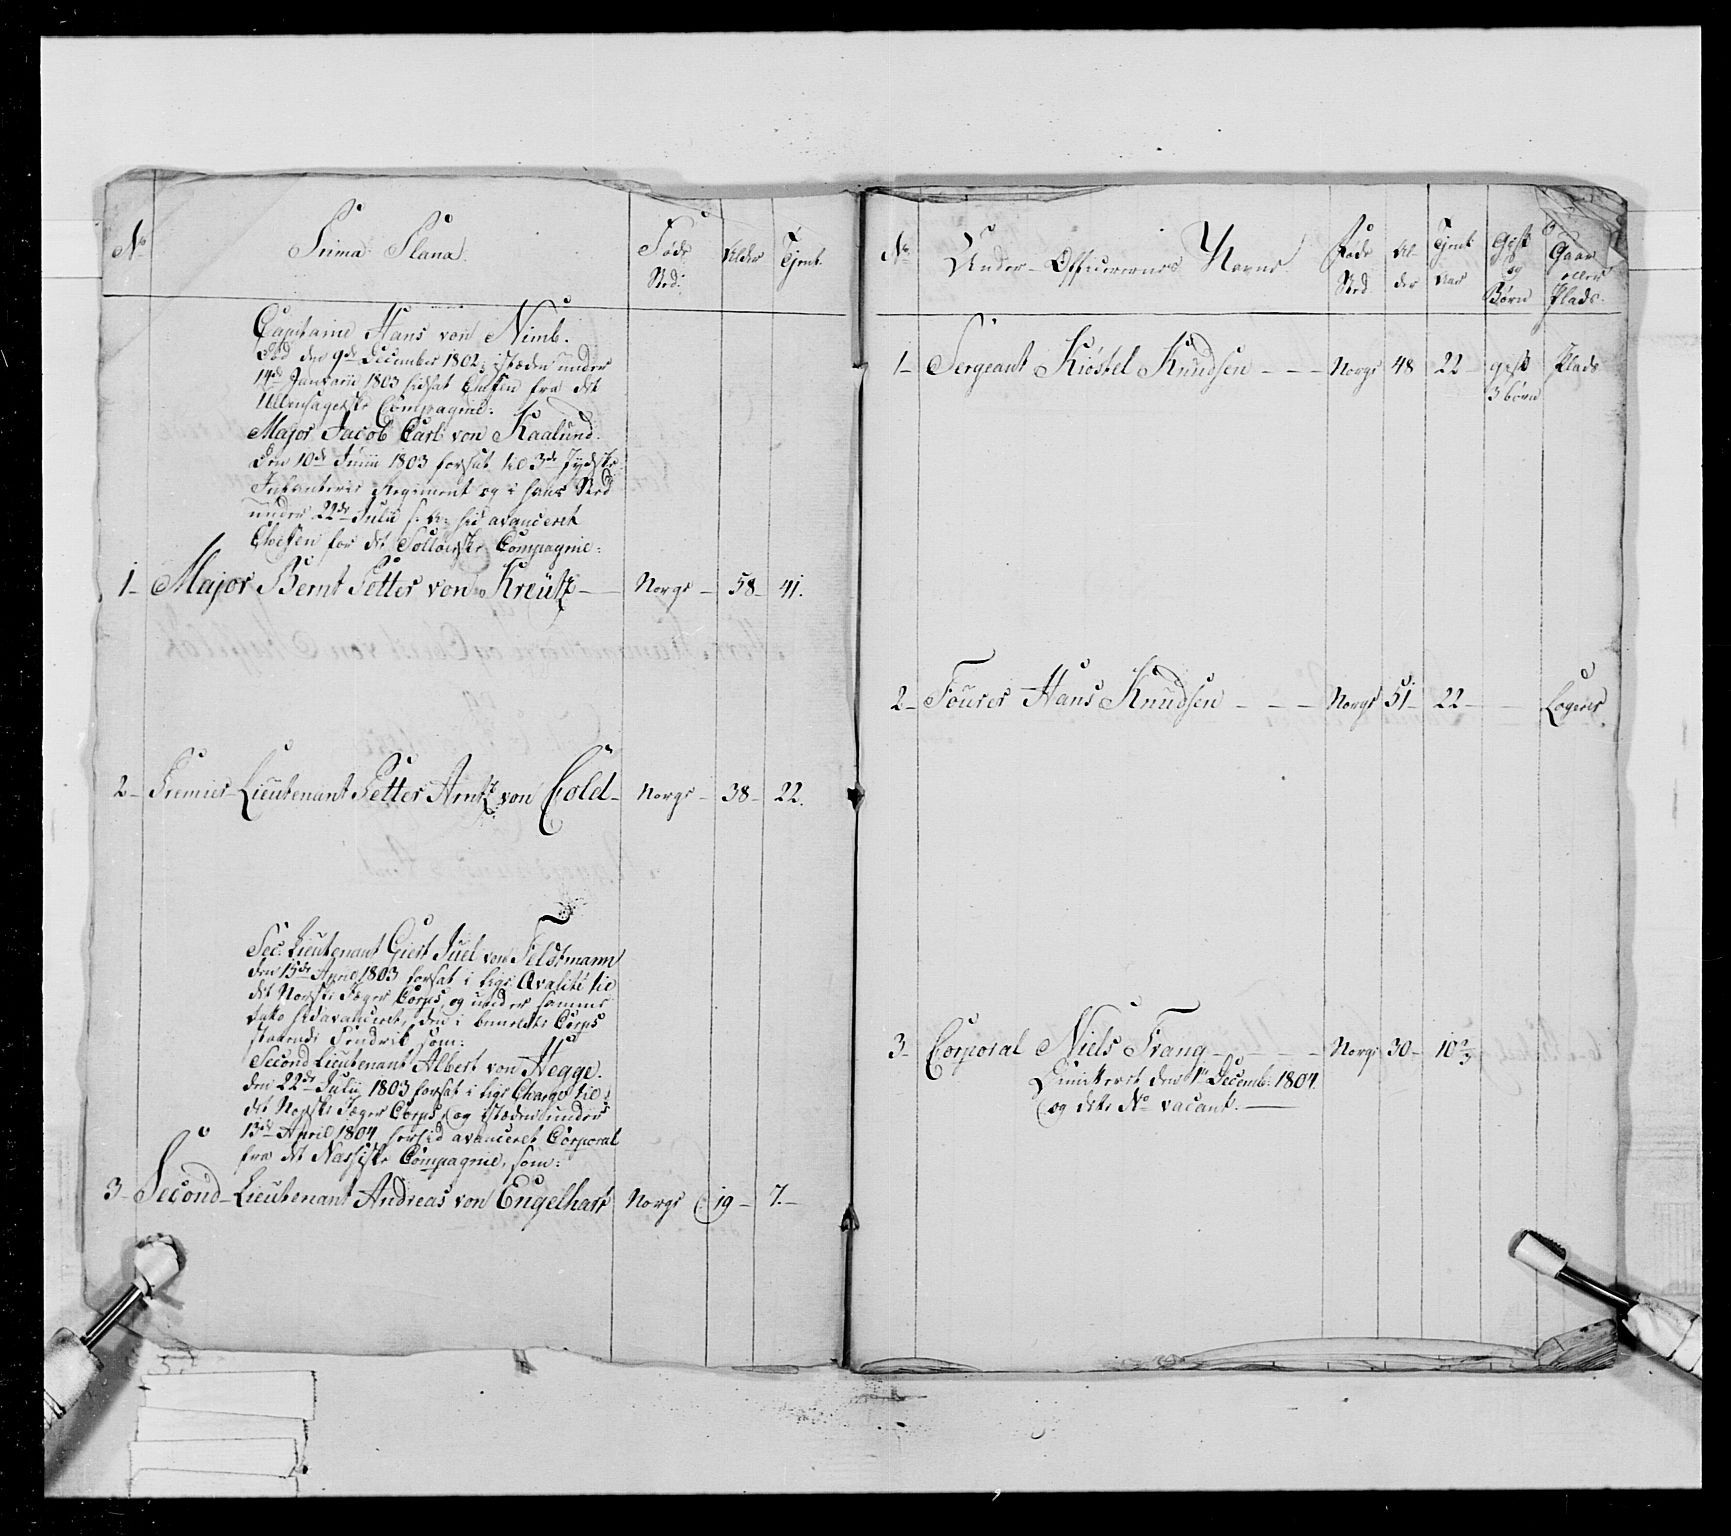 No
Prima Plana.
Føde
Sted.
Alder
Tjent.
Capitaine Hans von Nimb.
Død den 9de December 1802, i steden under
14de Januarii 1803 hidsat Chefen fra det
Ullensagerske Compagnie:
Major Jacob Carl von Kaalund.
den 10de Junii 1803 forsat til 3de Jydske
Infanterie Regiment og i hans Sted
under 22de Julii s. A. hid avanceret
Chefen for det Soløerske Compagnie:
1 - Major Bernt Petter von Kreutz - Norge - 58 - 41.
2 - Premier-Lieutenant Petter Arntz von Cold - Norge - 38 - 22.
Sec: Lieutenant Giert Juel von Feldtmann
den 15de April 1803 forsat i lige Qvalité til
det Norske Jæger Corps, og under samme
dato hidavanceret, den i bemeldte Corps
staaende Fendrik som:
Second Lieutenant Albert von Hegge.
den 22de Julii 1803 forsat i lige Charge til
det Norske Jæger Corps, og i steden under
13de April 1804 herhid avanceret Corporal
fra det Næssiske Compagnie, som:
3 - Second-Lieutenant Andreas von Engelhart Norge 19 - 7. -
No
Under-Officerernes Navne.
Føde
Sted
Al-
der
Tjent
Aar
Gift
og
Børn
Gaar
eller
Plads.
1 - Sergeant Kiøstel Knudsen - - - Norge 48 - 22 - gift Plads
3 børn
2 - Fourer Hans Knudsen - - - Norge 51 - 22 - - Logerer.
3 - Corporal Niels Trang - - - Norge 30 - 10 2/3
Dimitteret den 1te Decemb: 1804
og dette No vacant. -